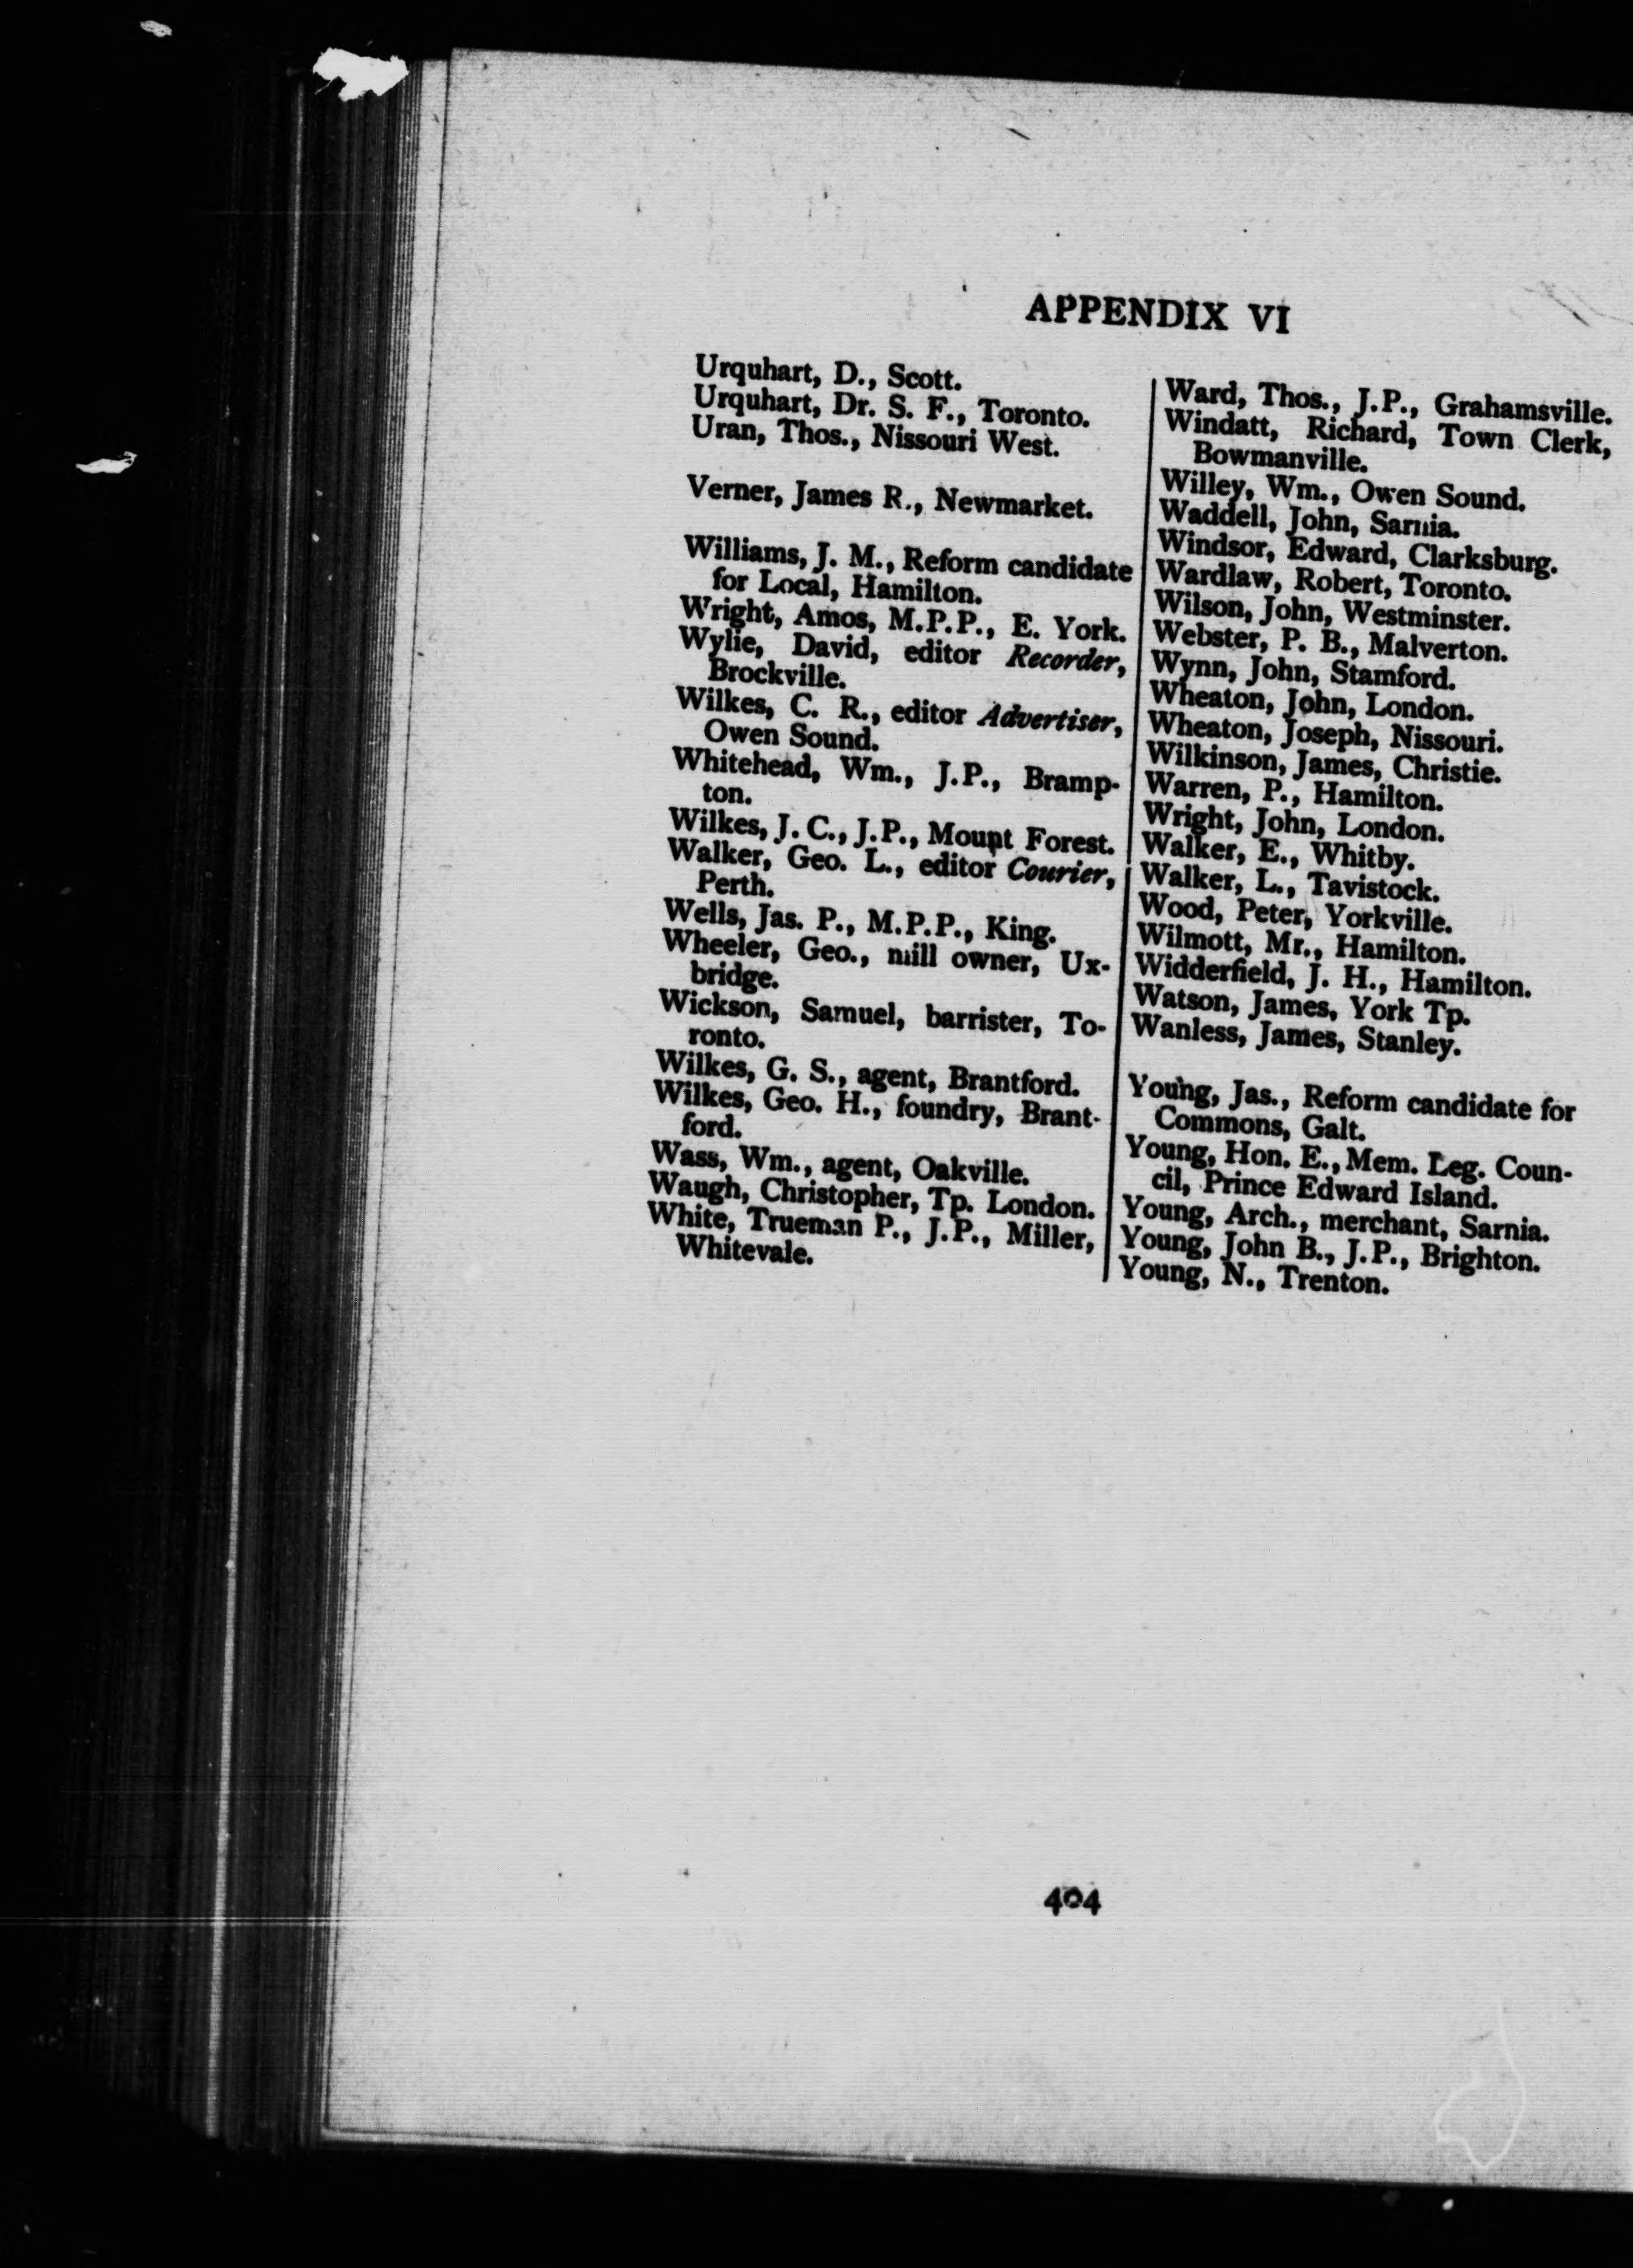 APPENDIX VI
Urquhart, D., Scott.
Urquhart, Dr. S. F., Toronto.
Uran, Thos., Nissouri West.
Verner, James R., Newmarket.
Williams, J. M., Reform candidate
for Local, Hamilton.
Wright, Amos, M.P.P., E. York.
Wylie, David, editor Recorder,
Brockville.
Wilkes, C. R., editor Advertiser,
Owen Sound.
Whitehead, Wm., J.P., Bramp-
ton.
Wilkes, J. C., J.P., Mount Forest.
Walker, Geo. L., editor Courier,
Perth.
Wells, Jas. P., M.P.P., King.
Wheeler, Geo., mill owner, Ux-
bridge.
Wickson, Samuel, barrister, To-
ronto.
Wilkes, G. S., agent, Brantford.
Wilkes, Geo. H., foundry, Brant-
ford.
Wass, Wm., agent, Oakville.
Waugh, Christopher, Tp. London.
White, Trueman P., J.P., Miller,
Whitevale.
Ward, Thos., J.P., Grahamsville.
Windatt, Richard, Town Clerk,
Bowmanville.
Willey, Wm., Owen Sound.
Waddell, John, Sarnia.
Windsor, Edward, Clarksburg.
Wardlaw, Robert, Toronto.
Wilson, John, Westminster.
Webster, P. B., Malverton.
Wynn, John, Stamford.
Wheaton, John, London.
Wheaton, Joseph, Nissouri.
Wilkinson, James, Christie.
Warren, P., Hamilton.
Wright, John, London.
Walker, E., Whitby.
Walker, L., Tavistock.
Wood, Peter, Yorkville.
Wilmott, Mr., Hamilton.
Widderfield, J. H., Hamilton.
Watson, James, York Tp.
Wanless, James, Stanley.
Young, Jas., Reform candidate for
Commons, Galt.
Young, Hon. E., Mem. Leg. Coun-
cil, Prince Edward Island.
Young, Arch., merchant, Sarnia.
Young, John B., J.P., Brighton.
Young, N., Trenton.
404